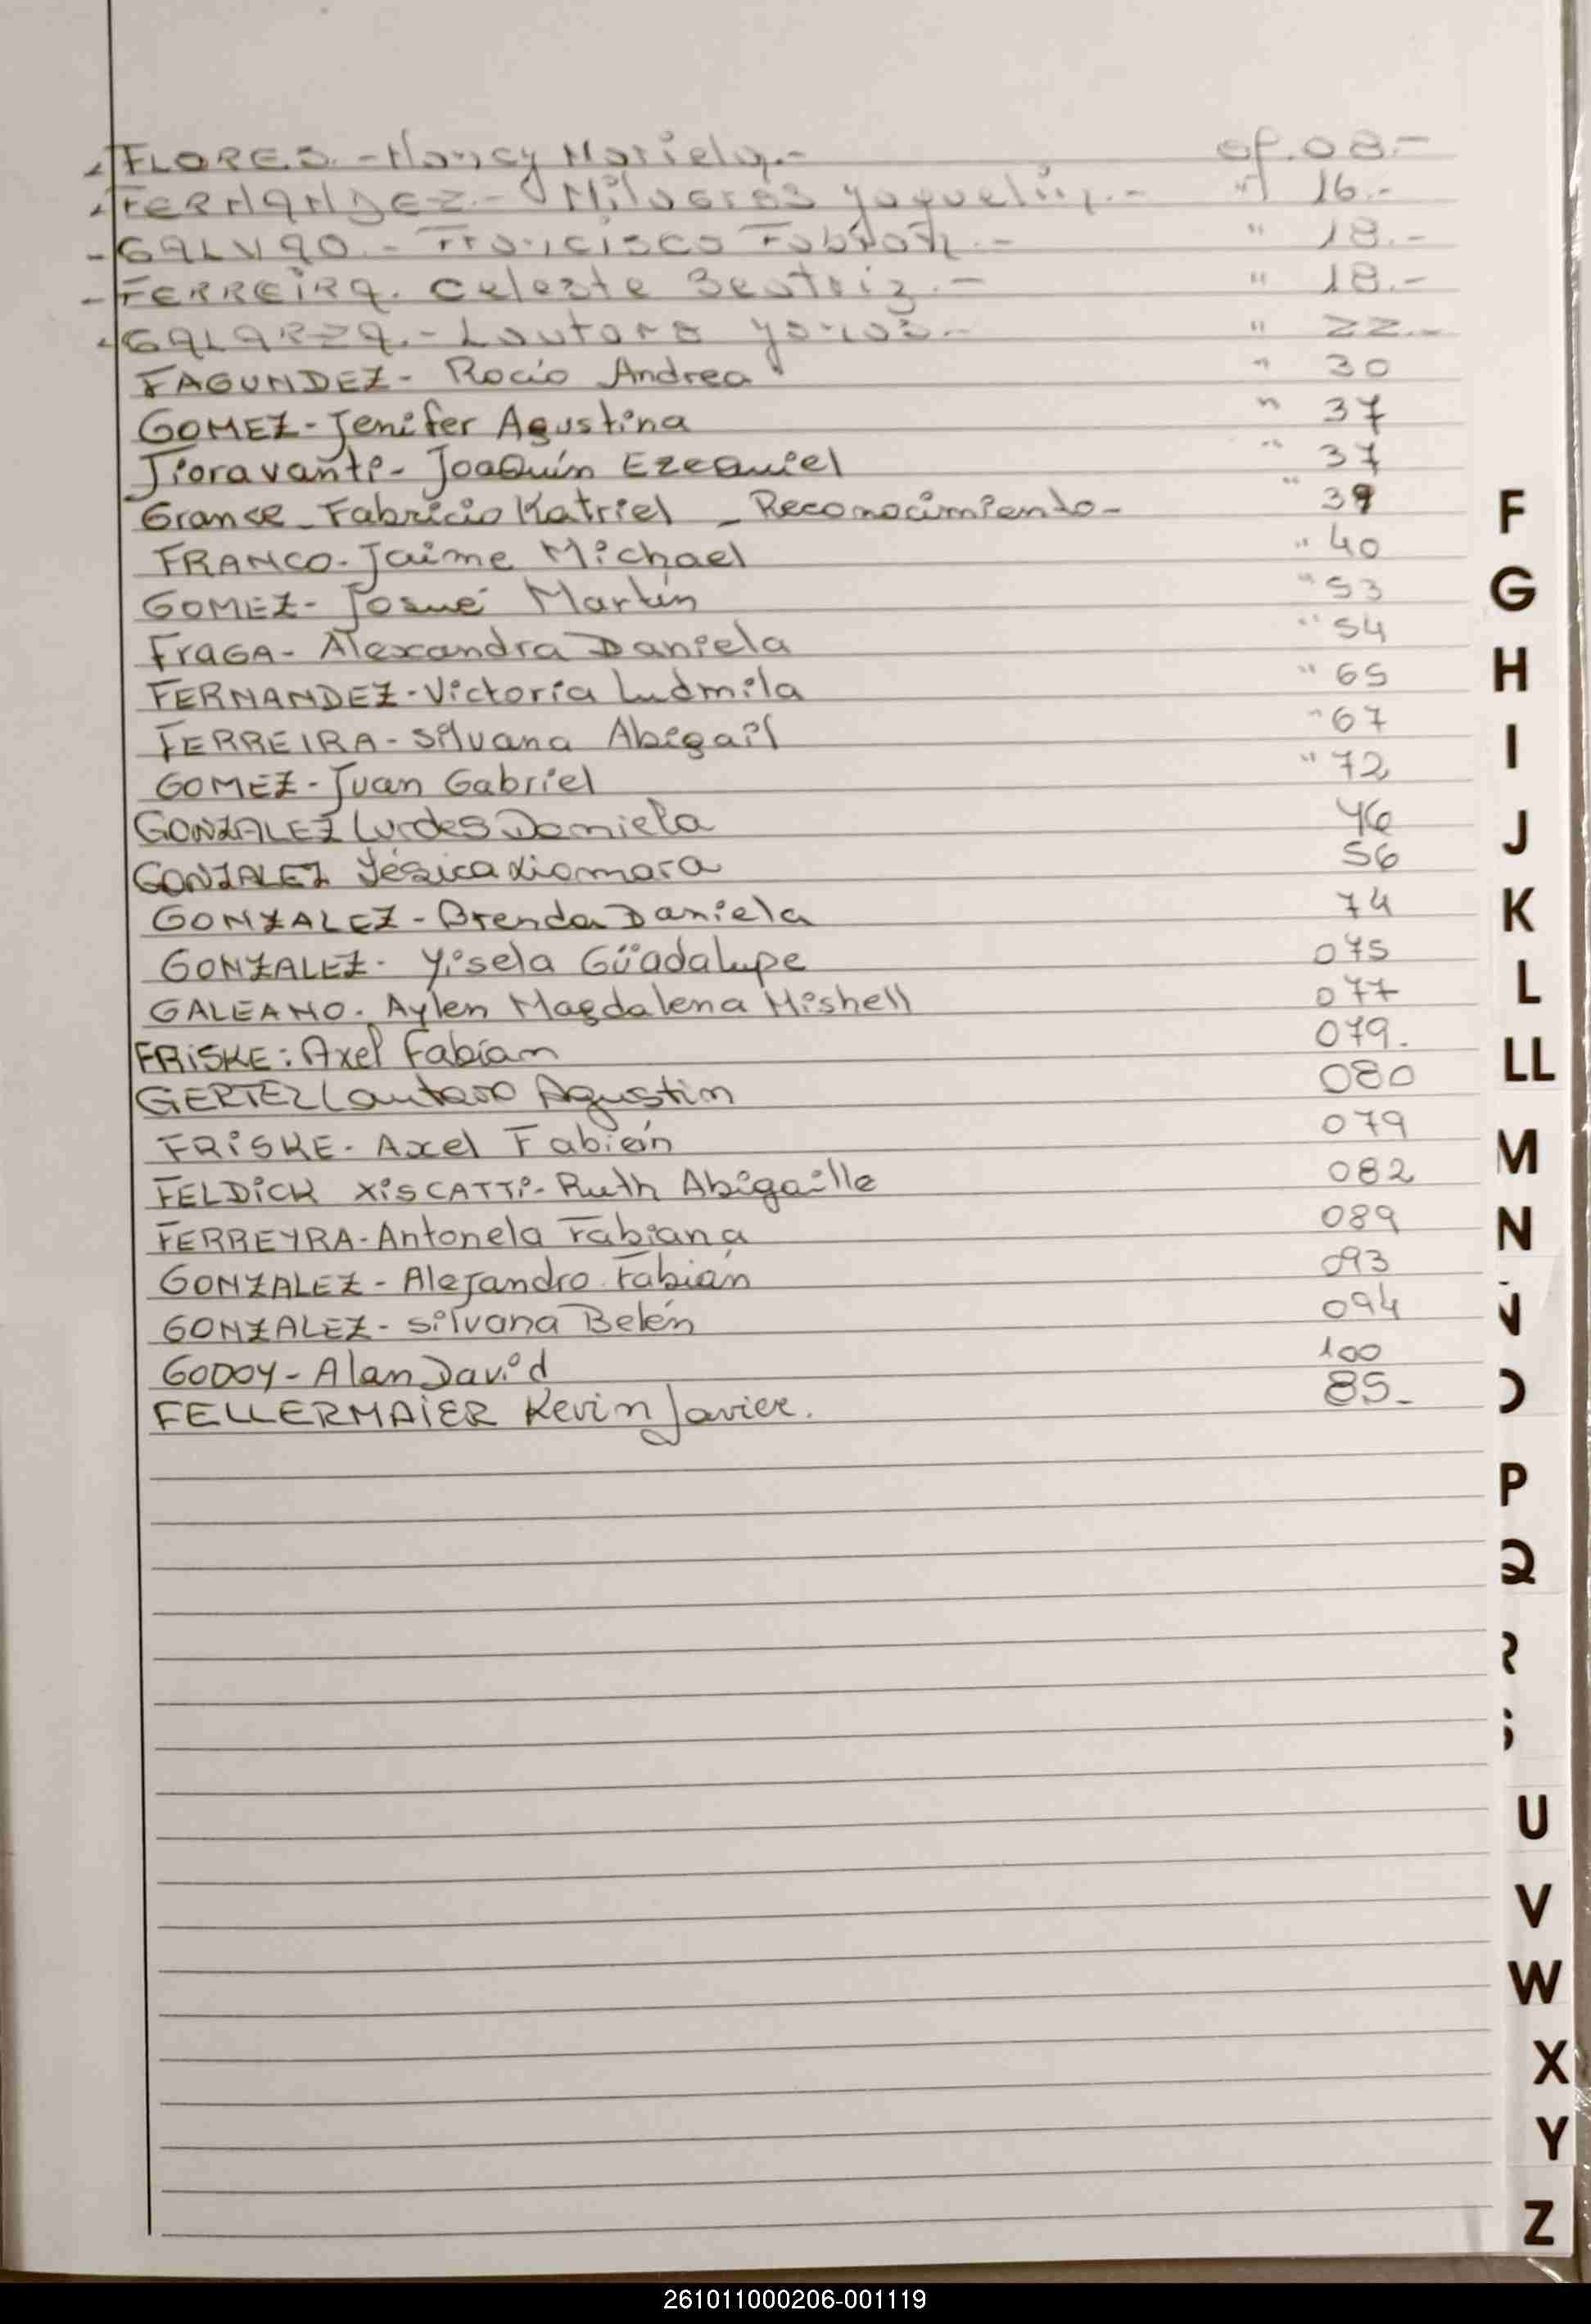 FLORES.-Nancy Mariela.- of. 08.-
FERNANDEZ.- Milagros Yaquelin.- " 16.-
GALVAO.- Francisco Fabian.- " 18.-
FERREIRA. Celeste Beatriz.- " 18.-
GALARZA.- Lautaro " 22.-
FAGUNDEZ- Rocío Andrea " 30
GOMEZ-Jenifer Agustina " 37
Fioravanti- Joaquín Ezequiel " 37
Grance-Fabricio Katriel - Reconocimiento- " 39
FRANCO-Jaime Michael " 40
GOMEZ- Josué Martín " 53
FraGA- Alexandra Daniela " 54
FERNANDEZ-Victoria Ludmila " 65
FERREIRA-Silvana Abigail " 67
GOMEZ-Juan Gabriel " 72
GONZALEZ Lurdes Daniela 46
GONZALEZ Yésica Xiomara 56
GONZALEZ-Brenda Daniela 74
GONZALEZ- Yisela Güadalupe 075
GALEANO. Aylen Magdalena Mishell 077
FRiSKE: Axel Fabían 079.
GERTEL Lautaro Agustin 080
FRiSKE- Axel Fabián 079
FELDiCK XiSCATTi-Ruth Abigaille 082
FERREYRA-Antonela Fabiana 089
GONZALEZ-Alejandro Fabián 093
GONZALEZ-Silvana Belén 094
GODOY-Alan David 100
FELLERMAiER Kevin Javier. 85-
F
G
H
I
J
K
L
LL
M
N
P
Q
U
V
W
X
Y
Z
261011000206-001119